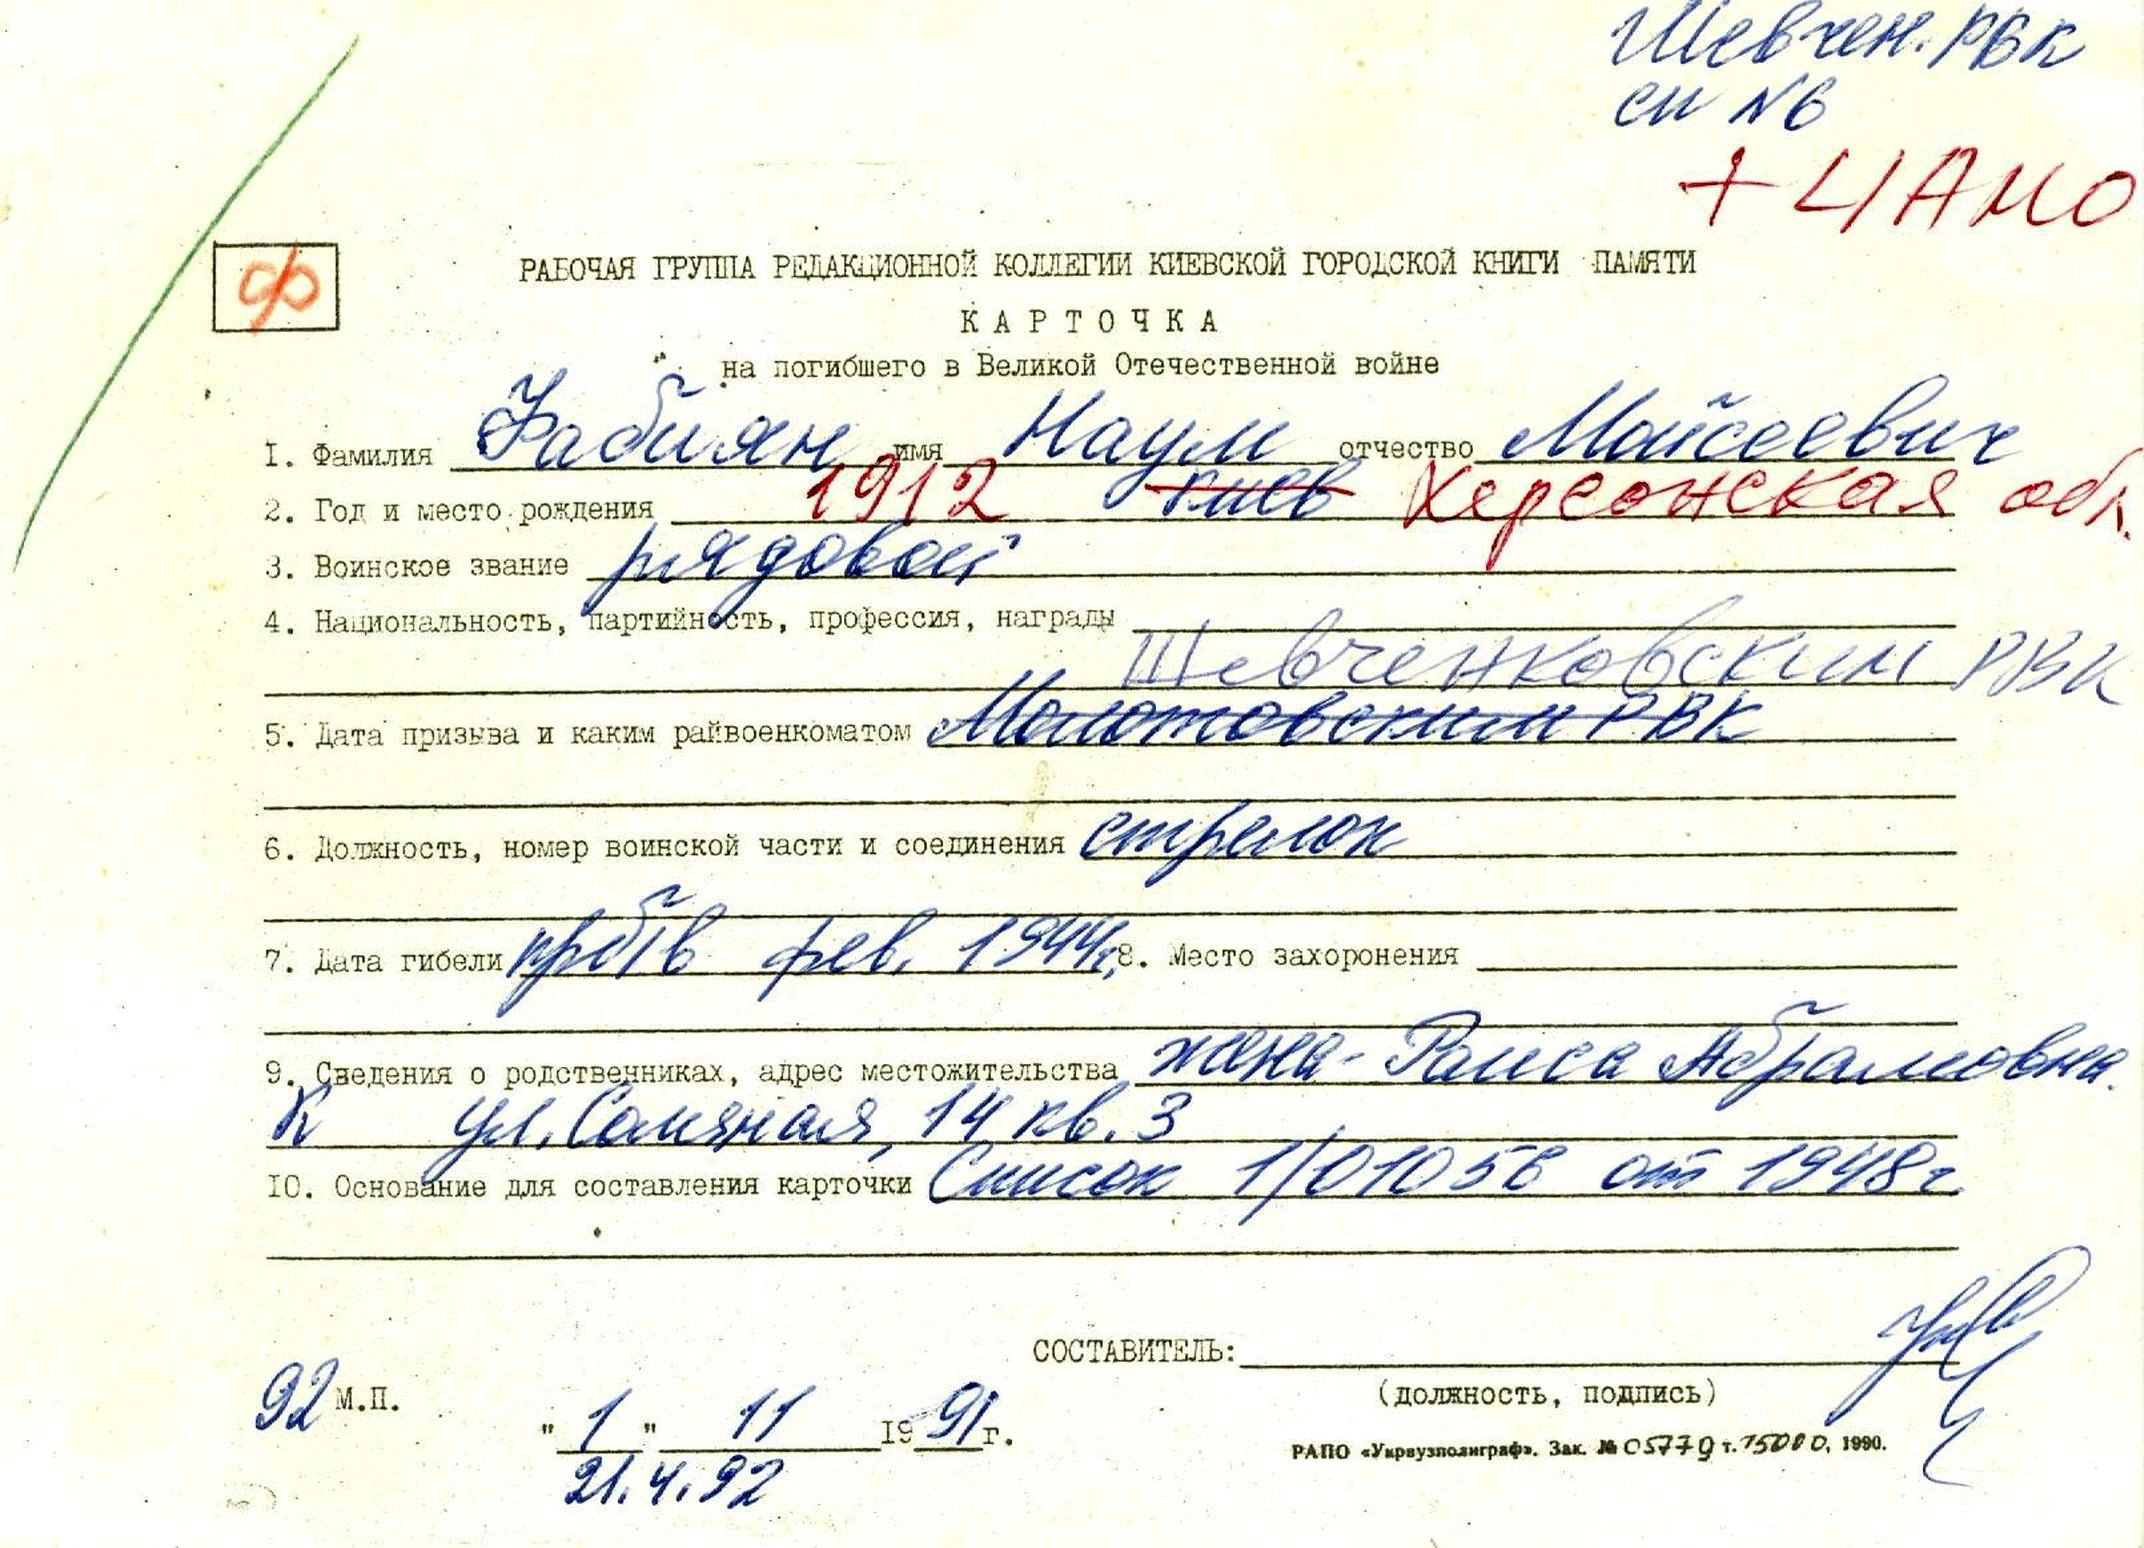 Шевчен. РВК
сп №6
+ ЦАМО
Ф
РАБОЧАЯ ГРУППА РЕДАКЦИОННОЙ КОЛЛЕГИИ КИЕВСКОЙ ГОРОДСКОЙ КНИГИ ПАМЯТИ
КАРТОЧКА
на погибшего в Великой Отечественной войне
1. Фамилия Фабиян имя Наум отчество Мойсеевич
2. Год и место рождения 1912 Киев Херсонская обл.
3. Воинское звание рядовой
4. Национальность, партийность, профессия, награды
Шевченковским РВК
5. Дата призыва и каким райвоенкоматом Молотовским РВК
6. Должность, номер воинской части и соединения стрелок
7. Дата гибели прбв фев. 1944г. 8. Место захоронения
9. Сведения о родственниках, адрес местожительства жена - Раиса Абрамовна.
К ул. Соляная, 14 кв. 3
10. Основание для составления карточки Список 1/01056 от 1948г
СОСТАВИТЕЛЬ:
(должность, подпись)
92 М.П.
"1" 11 1991г.
21.4.92
РАПО «Укрвузполиграф». Зак. № 05779 т. 15000, 1990.